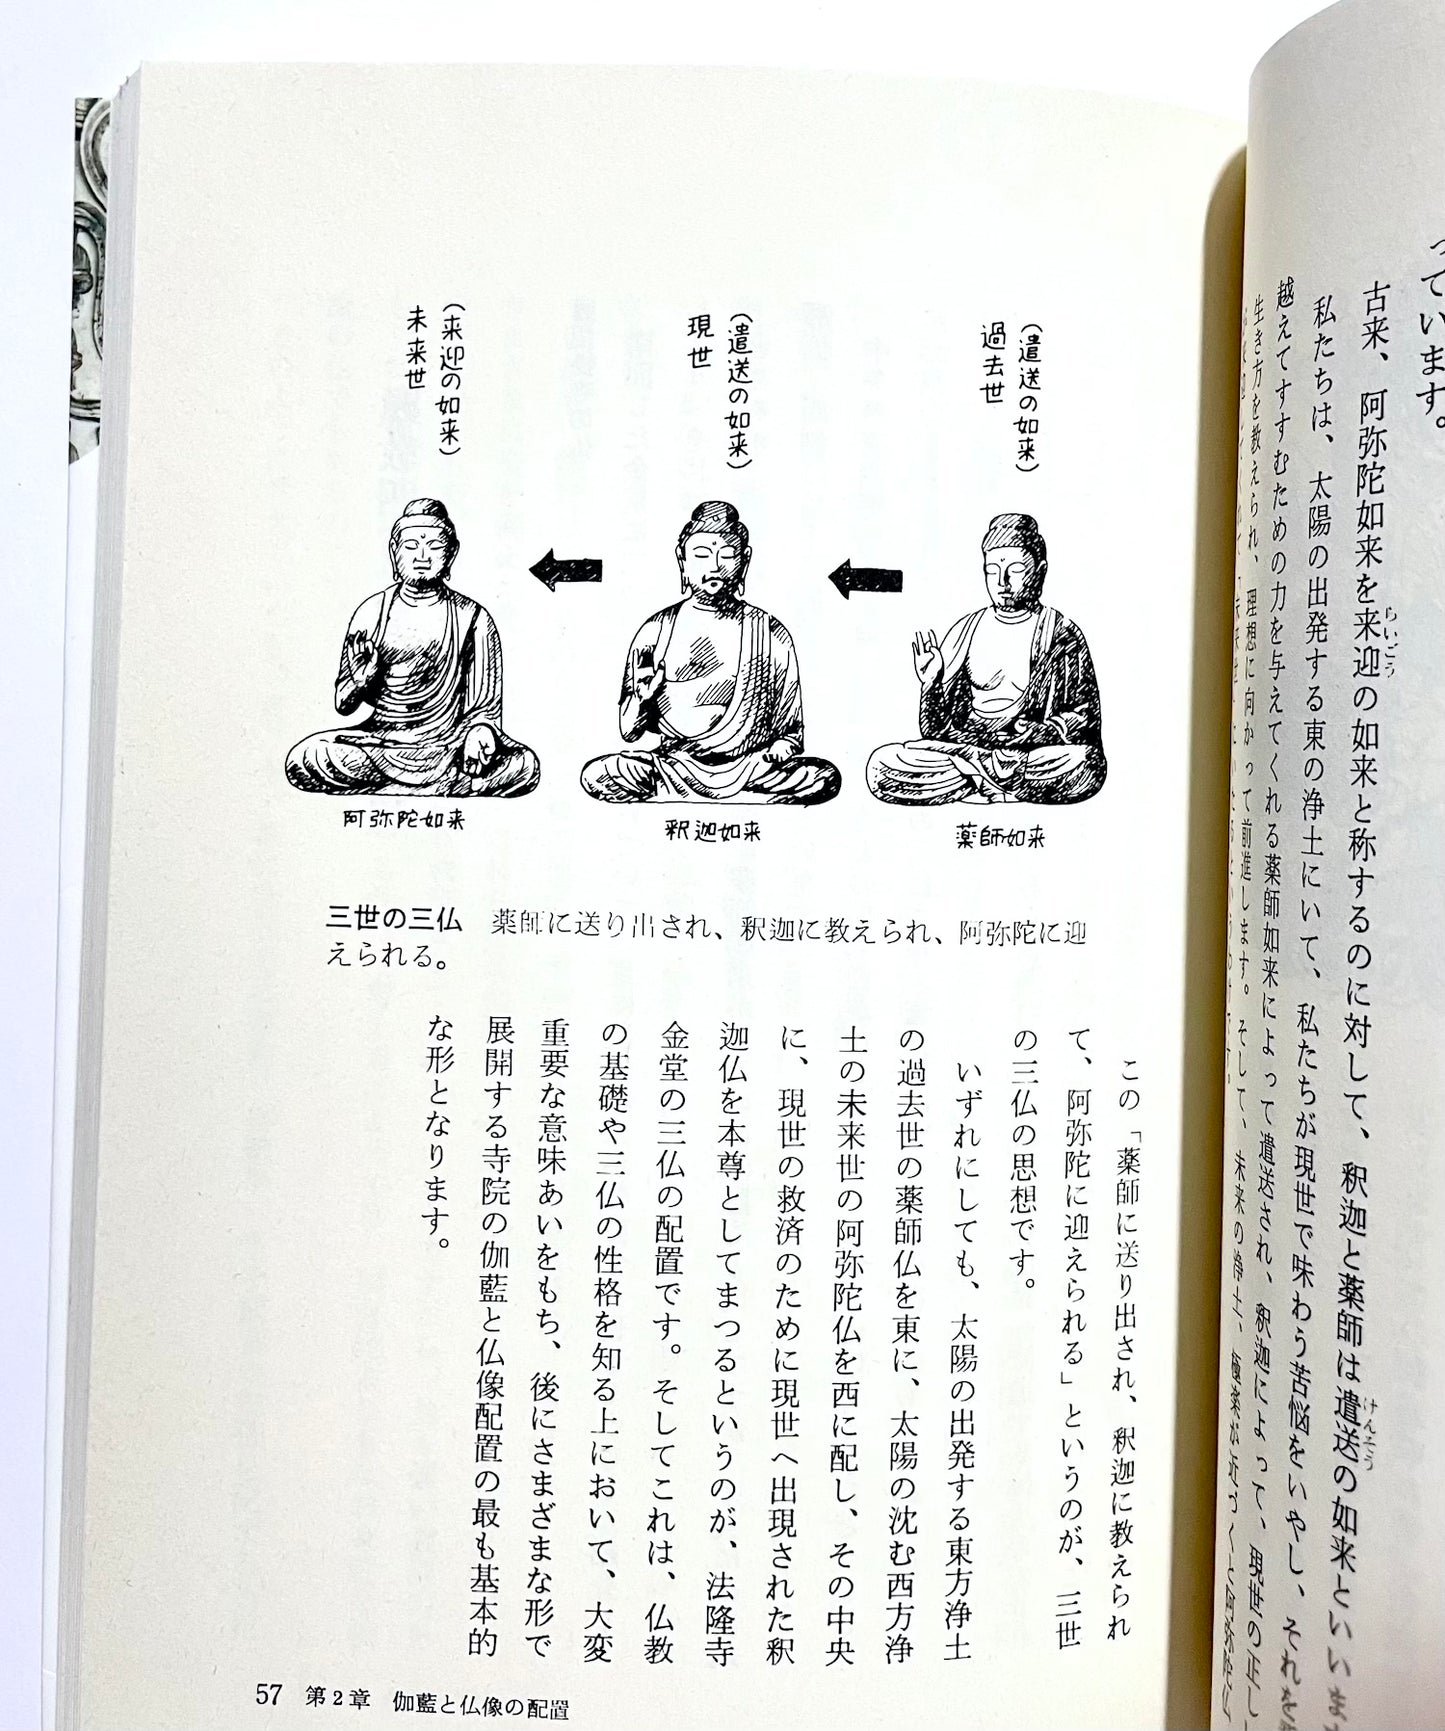 っています。
古来、阿弥陀如来を来迎の如来と称するのに対して、釈迦と薬師は遣送の如来といいま
らいごう
けんそう
私たちは、太陽の出発する東の浄土にいて、私たちが現世で味わう苦悩をいやし、それを
越えてすすむための力を与えてくれる薬師如来によって遣送され、釈迦によって、現世の正し
生き方を教えられ、理想に向かって前進します。そして、未来の浄土、
（遣送の如来）
過去世
（遣送の如来）
現世
（来迎の如来）
未来世
薬師如来
釈迦如来
阿弥陀如来
三世の三仏　薬師に送り出され、釈迦に教えられ、阿弥陀に迎
えられる。
この「薬師に送り出され、釈迦に教えられ
て、阿弥陀に迎えられる」というのが、三世
の三仏の思想です。
いずれにしても、太陽の出発する東方浄土
の過去世の薬師仏を東に、太陽の沈む西方浄
土の未来世の阿弥陀仏を西に配し、その中央
に、現世の救済のために現世へ出現された釈
迦仏を本尊としてまつるというのが、法隆寺
金堂の三仏の配置です。そしてこれは、仏教
の基礎や三仏の性格を知る上において、大変
重要な意味あいをもち、後にさまざまな形で
展開する寺院の伽藍と仏像配置の最も基本的
な形となります。
57　第2章　伽藍と仏像の配置